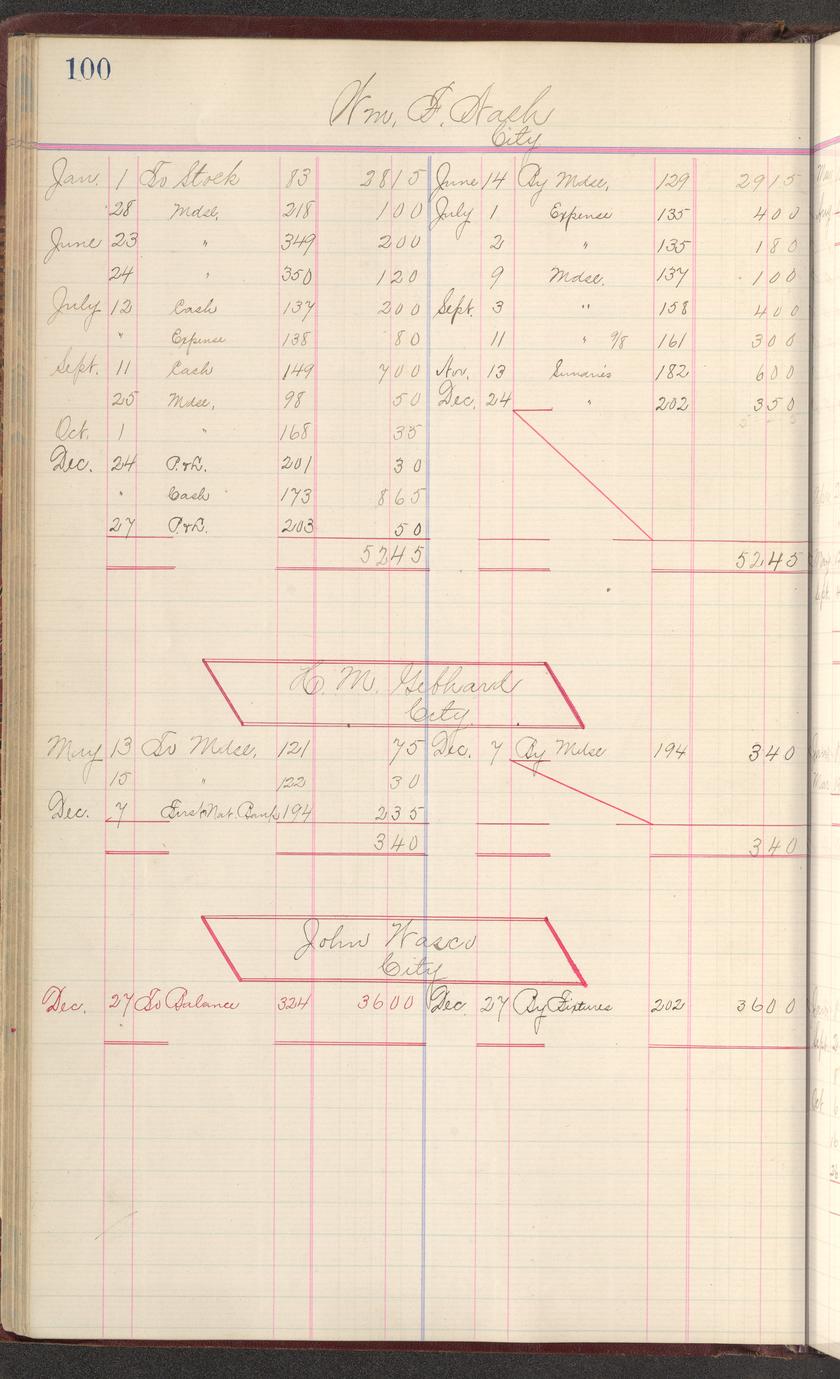 100
Wm. F. Nash
City
Jan. 1 To Stock 83 2815 June 14 By Mdse. 129 2915
28 Mdse. 218 100 July 1 Expense 135 400
June 23 " 349 200 2 " 135 180
24 " 350 120 9 Mdse. 137 100
July 12 Cash 137 200 Sept. 3 " 158 400
" Expense 138 80 11 " 9/8 161 300
Sept. 11 Cash 149 700 Nov. 13 Sundries 182 600
25 Mdse. 98 50 Dec. 24 " 202 350
Oct. 1 " 168 35
Dec. 24 P.&L. 201 30
" Cash 173 865
27 P.&L. 203 50
5245 5245
H. M. Gebhard
City
May 13 To Mdse. 121 75 Dec. 7 By Mdse 194 340
15 " 122 30
Dec. 7 First Nat. Bank 194 235
340 340
John Wasco
City
Dec. 27 To Balance 324 3600 Dec. 27 By Fixtures 202 3600